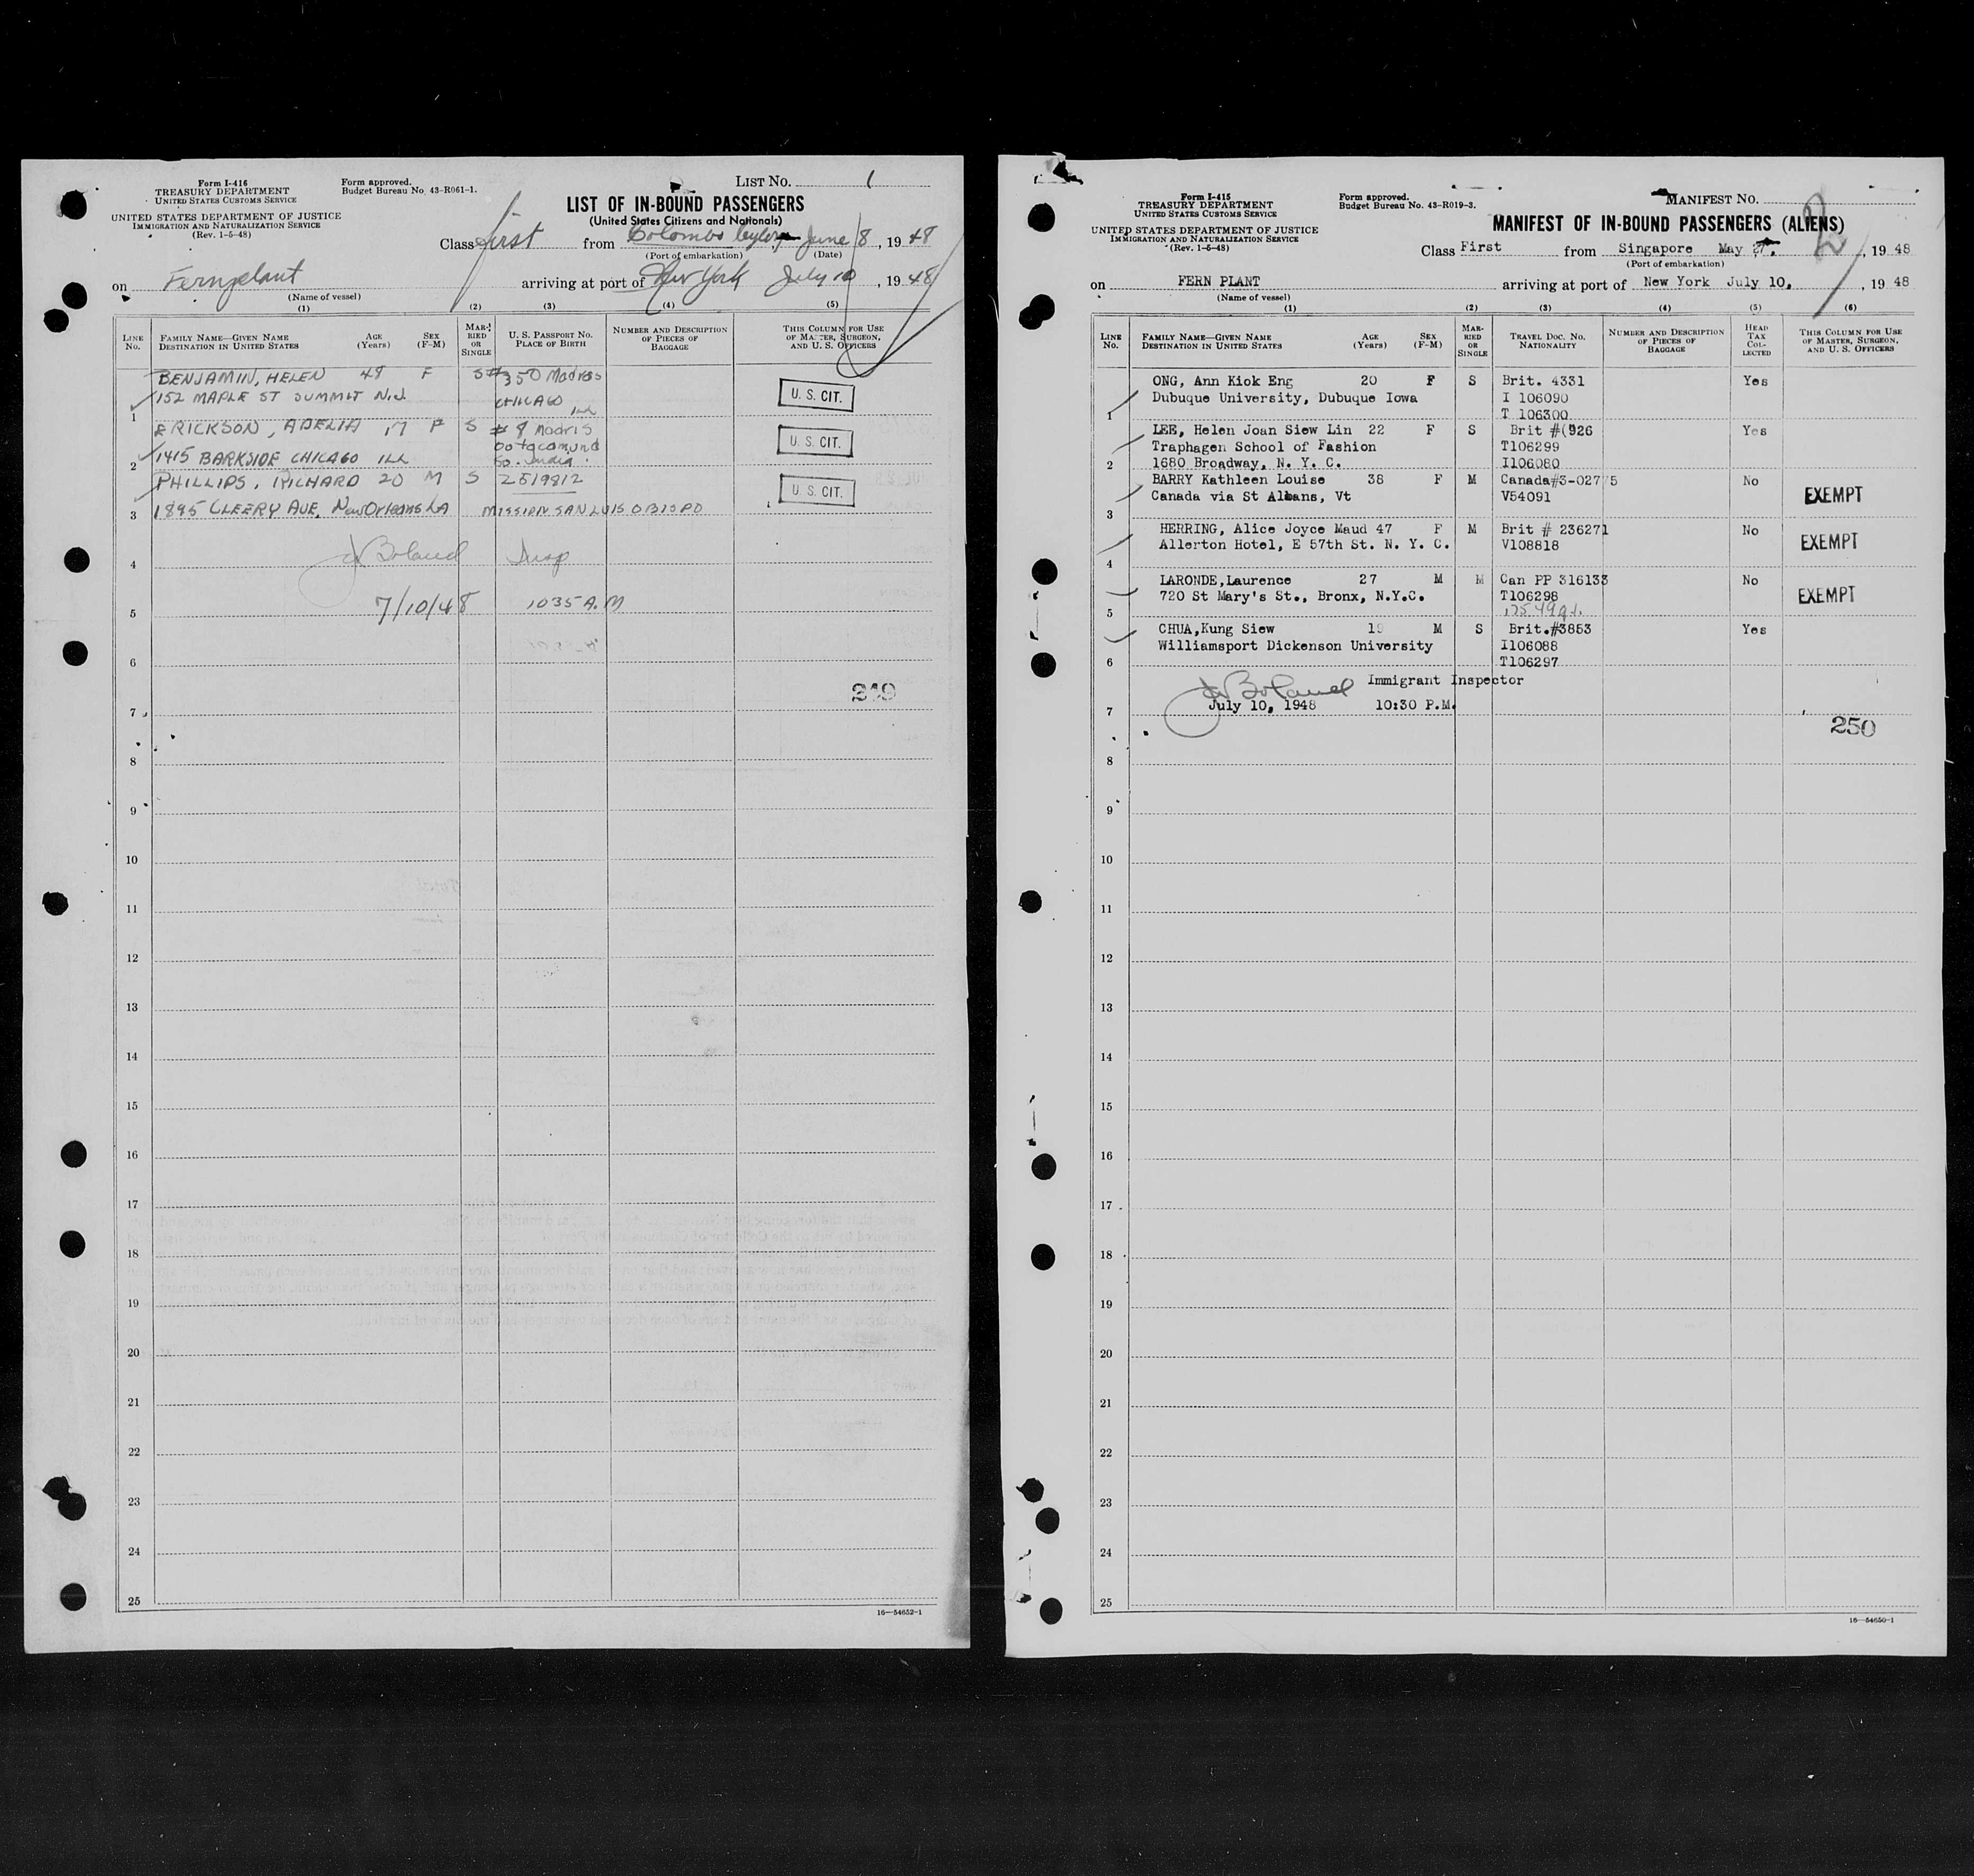 Form I-416
TREASURY DEPARTMENT
UNITED STATES CUSTOMS SERVICE
UNITED STATES DEPARTMENT OF JUSTICE
IMMIGRATION AND NATURALIZATION SERVICE
(Rev. 1-5-48)
Form approved.
Budget Bureau No. 43-R061-1.
LIST NO. 1
LIST OF IN-BOUND PASSENGERS
(United States Citizens and Nationals)
Class first from Colombo Ceylon June 8, 1948
(Port of embarkation) (Date)
on Fernplant arriving at port of New York July 10, 1948
(Name of vessel)
(1) (2) (3) (4) (5)
LINE No.
FAMILY NAME—GIVEN NAME DESTINATION IN UNITED STATES
AGE (Years)
SEX (F-M)
MARRIED OR SINGLE
U. S. PASSPORT NO. PLACE OF BIRTH
NUMBER AND DESCRIPTION OF PIECES OF BAGGAGE
THIS COLUMN FOR USE OF MASTER, SURGEON, AND U. S. OFFICERS
BENJAMIN, HELEN 48 F S #350 Madras
152 MAPLE ST SUMMIT N.J. CHICAGO Ill U. S. CIT.
1
ERICKSON, ADELIA 17 F S # 8 Madras
1415 BARKSIDE CHICAGO Ill Ootacamund So. India. U. S. CIT.
2
PHILLIPS, RICHARD 20 M S 2519812 U. S. CIT.
3 1895 CLEERY AVE, New Orleans LA MISSION SAN LUIS OBISPO
JW Boland Insp
4
7/10/48 1035 A.M
5
6
249
7
8
9
10
11
12
13
14
15
16
17
18
19
20
21
22
23
24
25
16—54652-1
Form I-415
TREASURY DEPARTMENT
UNITED STATES CUSTOMS SERVICE
UNITED STATES DEPARTMENT OF JUSTICE
IMMIGRATION AND NATURALIZATION SERVICE
(Rev. 1-5-48)
Form approved.
Budget Bureau No. 43-R019-3.
MANIFEST NO. 2
MANIFEST OF IN-BOUND PASSENGERS (ALIENS)
Class First from Singapore May 27, 1948
(Port of embarkation)
on FERN PLANT arriving at port of New York July 10, , 1948
(Name of vessel)
(1) (2) (3) (4) (5) (6)
LINE No.
FAMILY NAME—GIVEN NAME DESTINATION IN UNITED STATES
AGE (Years)
SEX (F-M)
MARRIED OR SINGLE
TRAVEL DOC. NO. NATIONALITY
NUMBER AND DESCRIPTION OF PIECES OF BAGGAGE
HEAD TAX COLLECTED
THIS COLUMN FOR USE OF MASTER, SURGEON, AND U. S. OFFICERS
ONG, Ann Kiok Eng 20 F S Brit. 4331 Yes
Dubuque University, Dubuque Iowa I 106090
1 T 106300
LEE, Helen Joan Siew Lin 22 F S Brit #(926 Yes
Traphagen School of Fashion T106299
2 1680 Broadway, N. Y. C. I106080
BARRY Kathleen Louise 38 F M Canada#3-02775 No
Canada via St Albans, Vt V54091 EXEMPT
3
HERRING, Alice Joyce Maud 47 F M Brit # 236271 No
Allerton Hotel, E 57th St. N. Y. C. V108818 EXEMPT
4
LARONDE,Laurence 27 M M Can PP 316133 No
720 St Mary's St., Bronx, N.Y.C. T106298 EXEMPT
5
CHUA,Kung Siew 19 M S Brit.#3853 Yes
Williamsport Dickenson University I106088
6 T106297
JW Boland Immigrant Inspector
July 10, 1948 10:30 P.M.
7
250
8
9
10
11
12
13
14
15
16
17
18
19
20
21
22
23
24
25
16—54650-1